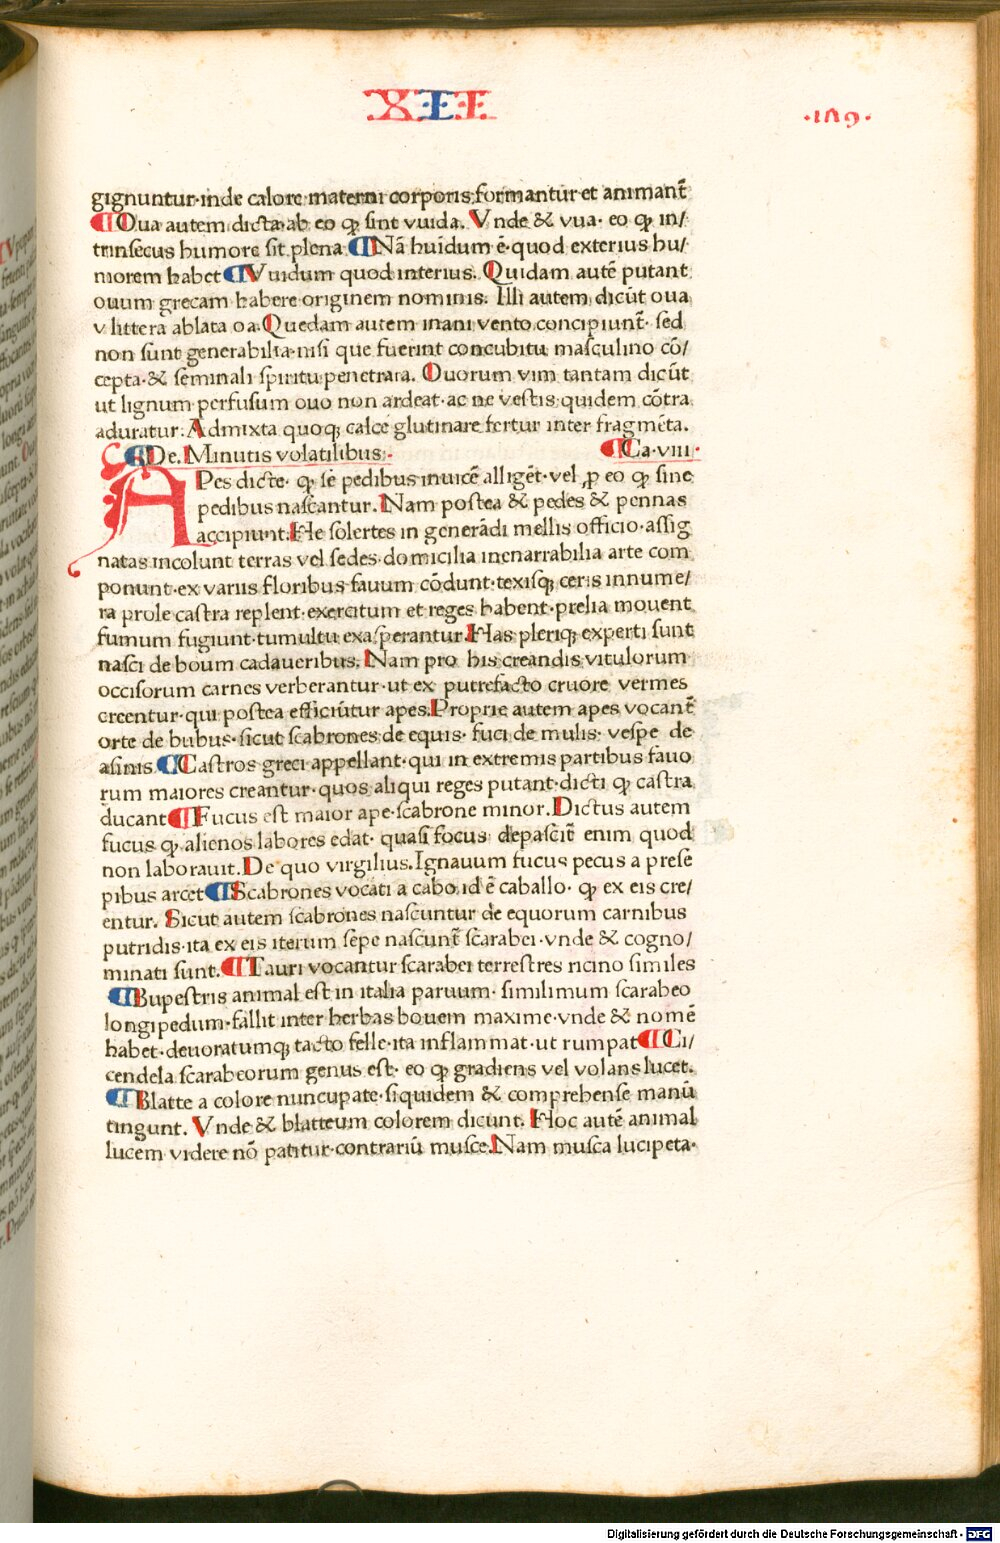 XII
·189·
gignuntur·inde calore materni corporis formantur et animant̄
¶Oua autem dicta·ab eo ꝙ sint vuida. Vnde & vua· eo ꝙ in/
trinsecus humore sit plena ¶Nā huīdum ē·quod exterius hu/
morem habet ¶Vuidum quod interius. Quidam autē putant
ouum grecam habere originem nominis. Illi autem dicūt oua
v littera ablata oa. Quedam autem inani vento concipiunt· sed
non sunt generabilia·nisi que fuerint concubitu masculino cō/
cepta·& seminali spiritu penetrata. Ouorum vim tantam dicūt
ut lignum perfusum ouo non ardeat·ac ne vestis quidem cōtra
aduratur. Admixta quoqꝫ calce glutinare fertur inter fragmēta.
¶De. Minutis volatilibus·
¶Ca·viii·
APes dicte· ꝙ se pedibus inuicē alligēt·vel ꝓ eo ꝙ sine
pedibus nascantur. Nam postea & pedes & pennas
accipiunt. He solertes in generādi mellis officio·assig
natas incolunt terras vel sedes·domicilia inenarrabilia arte com
ponunt·ex variis floribus fauum cōdunt·texisqꝫ ceris innume/
ra prole castra replent·exercitum et reges habent·prelia mouent
fumum fugiunt·tumultu exasperantur. Has pleriqꝫ experti sunt
nasci de boum cadaueribus. Nam pro his creandis vitulorum
occisorum carnes verberantur·ut ex putrefacto cruore vermes
creentur·qui postea efficiūtur apes. Proprie autem apes vocant̄
orte de bubus·sicut scabrones de equis· fuci de mulis· vespe de
asinis ¶Castros greci appellant·qui in extremis partibus fauo
rum maiores creantur·quos aliqui reges putant·dicti ꝙ castra
ducant ¶Fucus est maior ape·scabrone minor. Dictus autem
fucus ꝙ alienos labores edat· quasi focus· depascit̄ enim quod
non laborauit. De quo virgilius. Ignauum fucus pecus a prese
pibus arcet ¶Scabrones vocati a cabo·id ē caballo· ꝙ ex eis cre/
entur. Sicut autem scabrones nascuntur de equorum carnibus
putridis·ita ex eis iterum sepe nascunt̄ scarabei·vnde & cogno/
minati sunt. ¶Tauri vocantur scarabei terrestres ricino similes
¶Bupestris animal est in italia paruum· simillimum scarabeo
longipedum·fallit inter herbas bouem maxime·vnde & nomē
habet·deuoratumqꝫ tacto felle·ita inflammat·ut rumpat ¶Ci/
cendela scarabeorum genus est· eo ꝙ gradiens vel volans lucet.
¶Blatte a colore nuncupate·siquidem & comprehense manū
tingunt. Vnde & blatteum colorem dicunt. Hoc autē animal
lucem videre nō patitur·contrariū musce. Nam musca lucipeta·
Digitalisierung gefördert durch die Deutsche Forschungsgemeinschaft - DFG